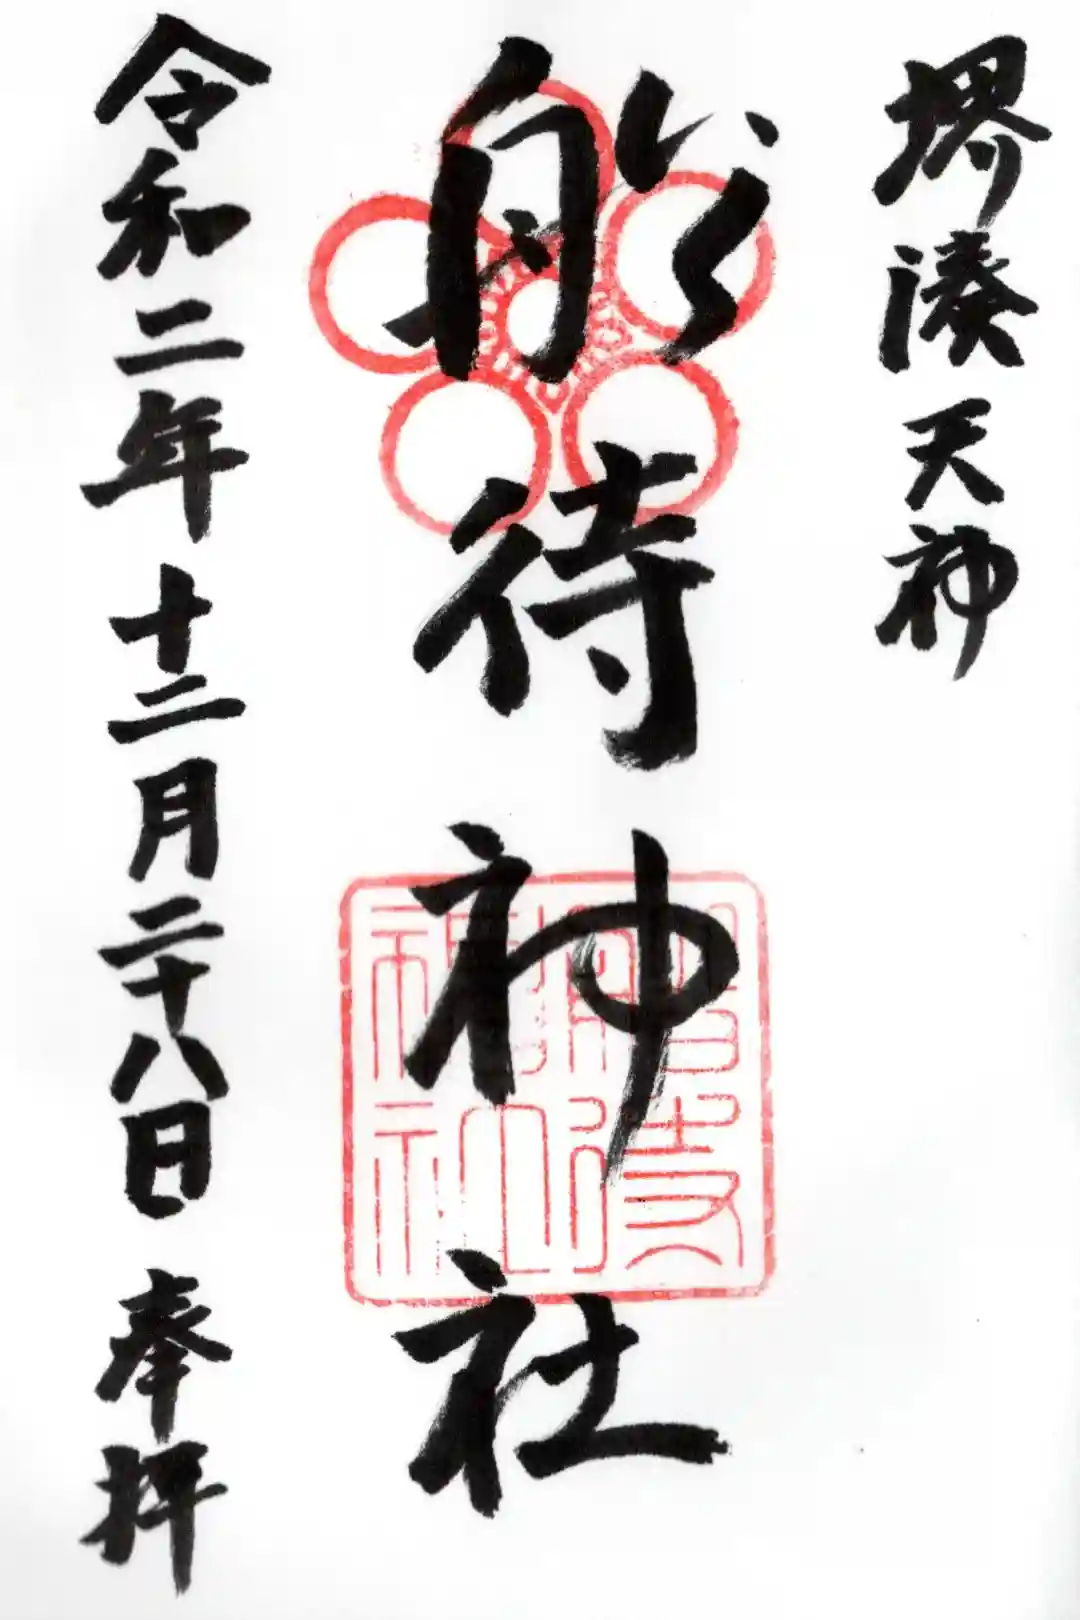 堺湊天神
船待神社
令和二年十二月二十八日奉拝